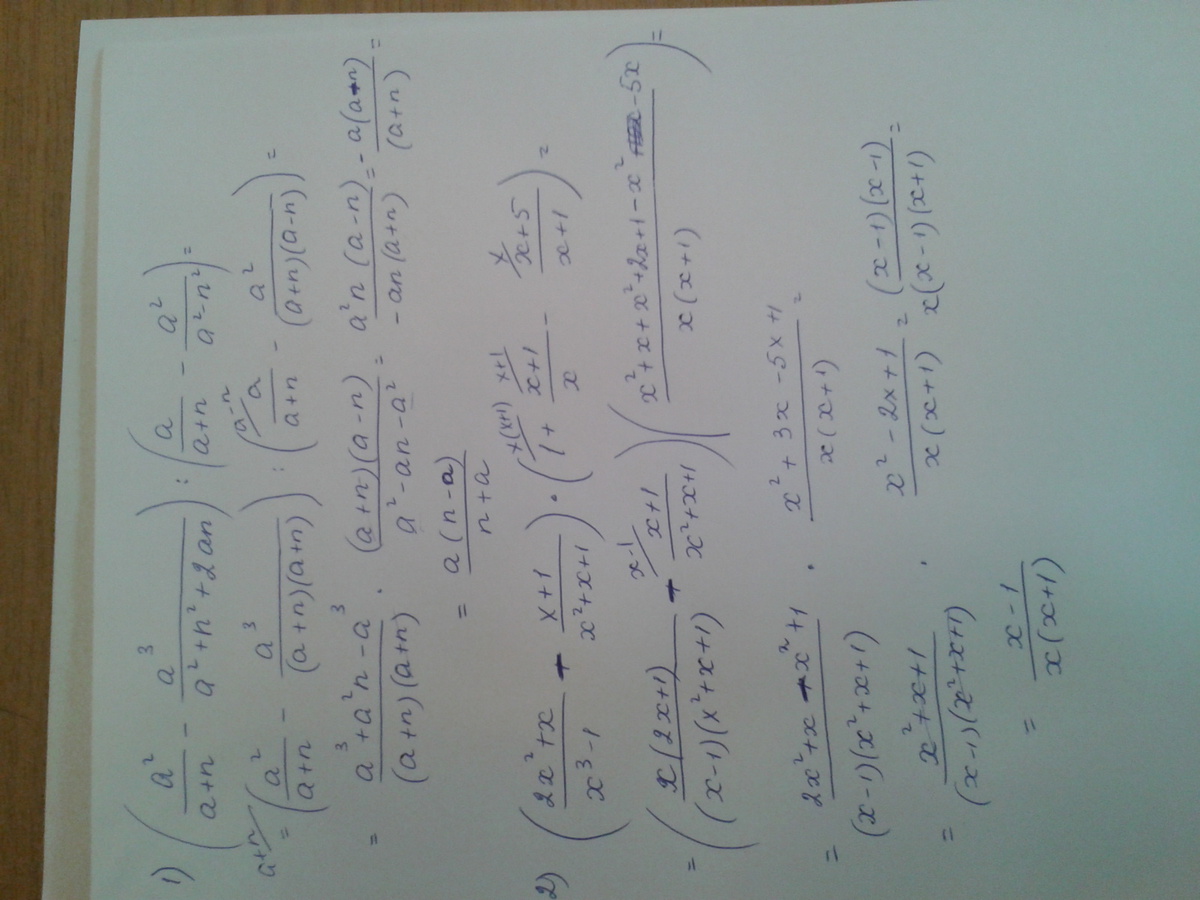 1) (a²/(a+n) - a³/(a²+n²+2an)) : (a/(a+n) - a²/(a²-n²)) =
= (a+n/ a²/(a+n) - a³/((a+n)(a+n))) : (a-n/ a/(a+n) - a²/((a+n)(a-n))) =
= (a³+a²n-a³)/((a+n)(a+n)) · ((a+n)(a-n))/(a²-an-a²) = (a²n(a-n))/(-an(a+n)) = - (a(a-n))/((a+n)) =
= (a(n-a))/(n+a)
2) ((2x²+x)/(x³-1) - (x+1)/(x²+x+1)) · (x(x+1)/ 1 + x+1/ (x+1)/x - x/ (x+5)/(x+1)) =
= ((x(2x+1))/((x-1)(x²+x+1)) - x-1/ (x+1)/(x²+x+1)) ((x²+x+x²+2x+1-x²-5x)/(x(x+1))) =
= (2x²+x-x²+1)/((x-1)(x²+x+1)) · (x²+3x-5x+1)/(x(x+1)) =
= (x²+x+1)/((x-1)(x²+x+1)) · (x²-2x+1)/(x(x+1)) = ((x-1)(x-1))/(x(x-1)(x+1)) =
= (x-1)/(x(x+1))